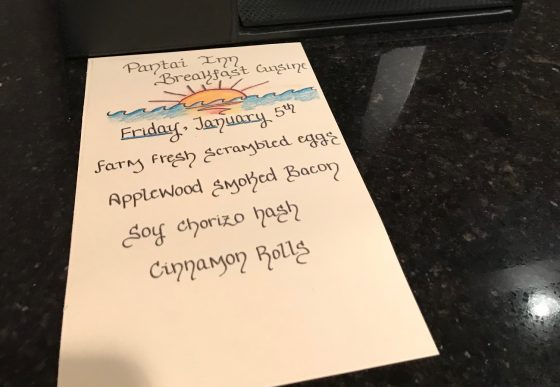 Pantai Inn
Breakfast Cuisine
Friday, January 5th
Farm Fresh Scrambled eggs
Applewood Smoked Bacon
Soy Chorizo Hash
Cinnamon Rolls